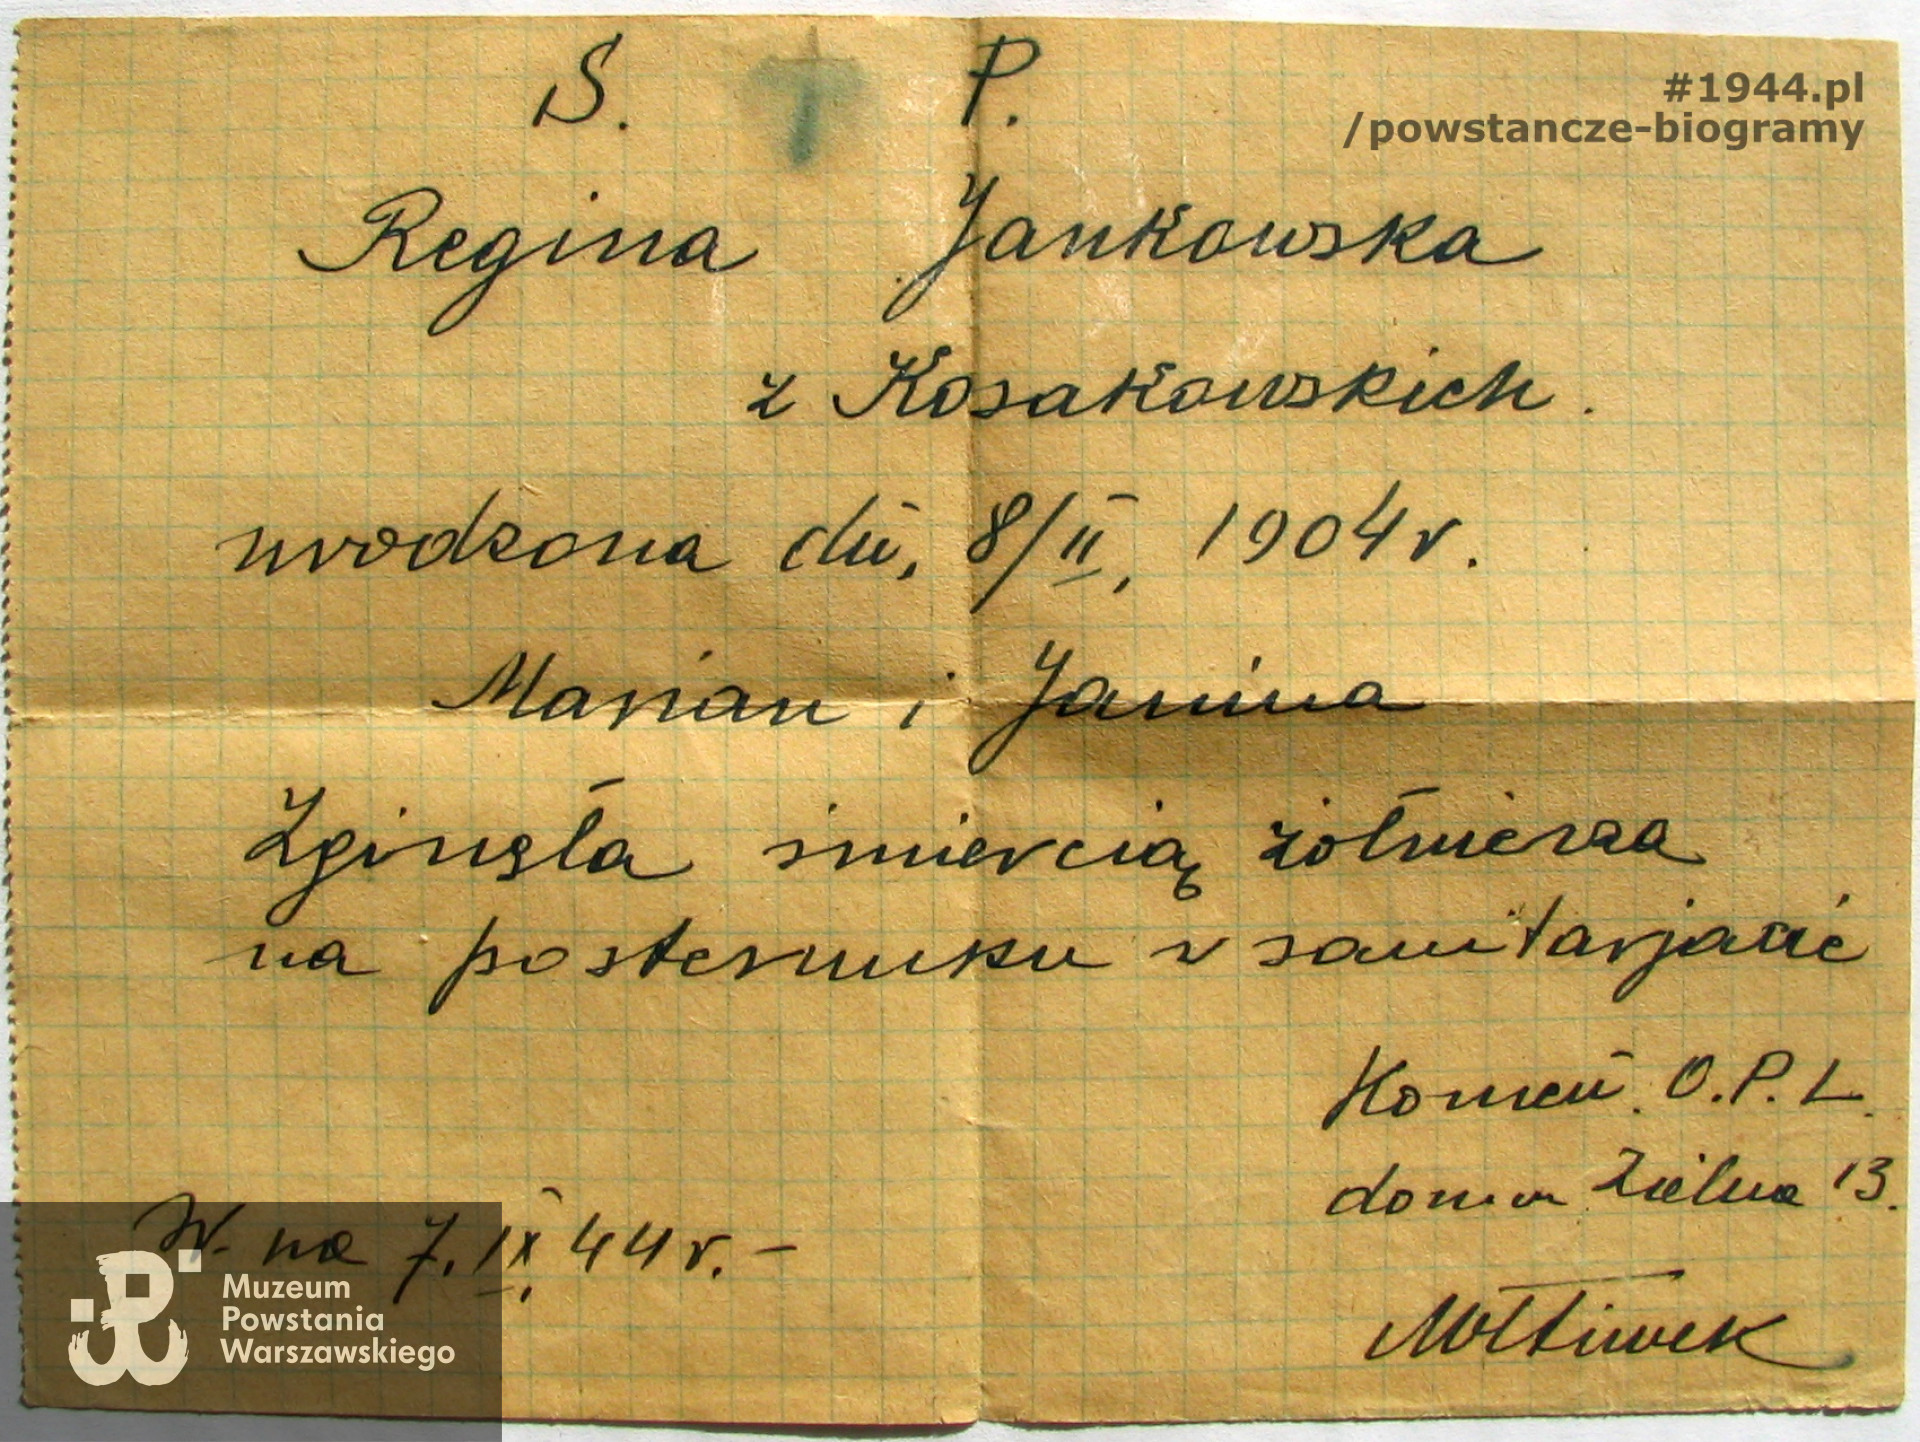 Ś. P.
#1944.pl
/powstancze-biogramy
Regina Jankowska
z Kosakowskich.
urodzona dn. 8/II, 1904 r.
Marian i Janina
Zginęła śmiercią żołnierza
na posterunku w sanitarjacie
Komen. O.P.L.
domu Zielna 13.
W-na 7.IX. 44 r. –
Muzeum
Powstania
Warszawskiego